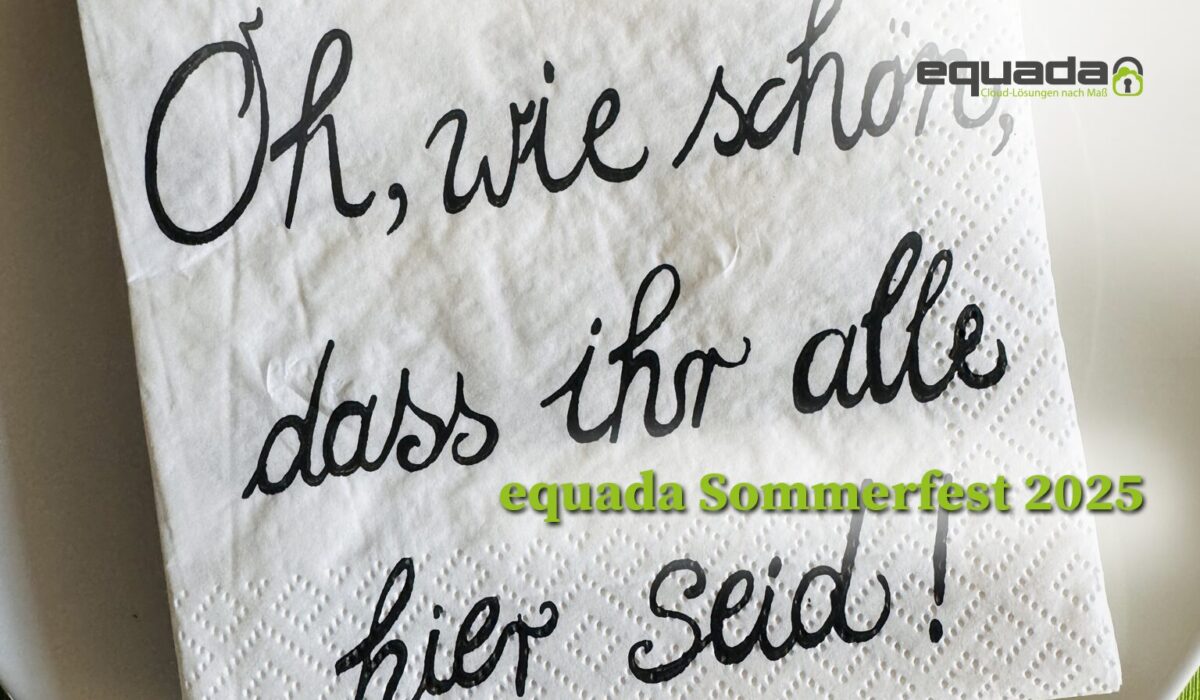 Oh, wie schön,
equada
Cloud-Lösungen nach Maß
dass ihr alle
equada Sommerfest 2025
hier seid!